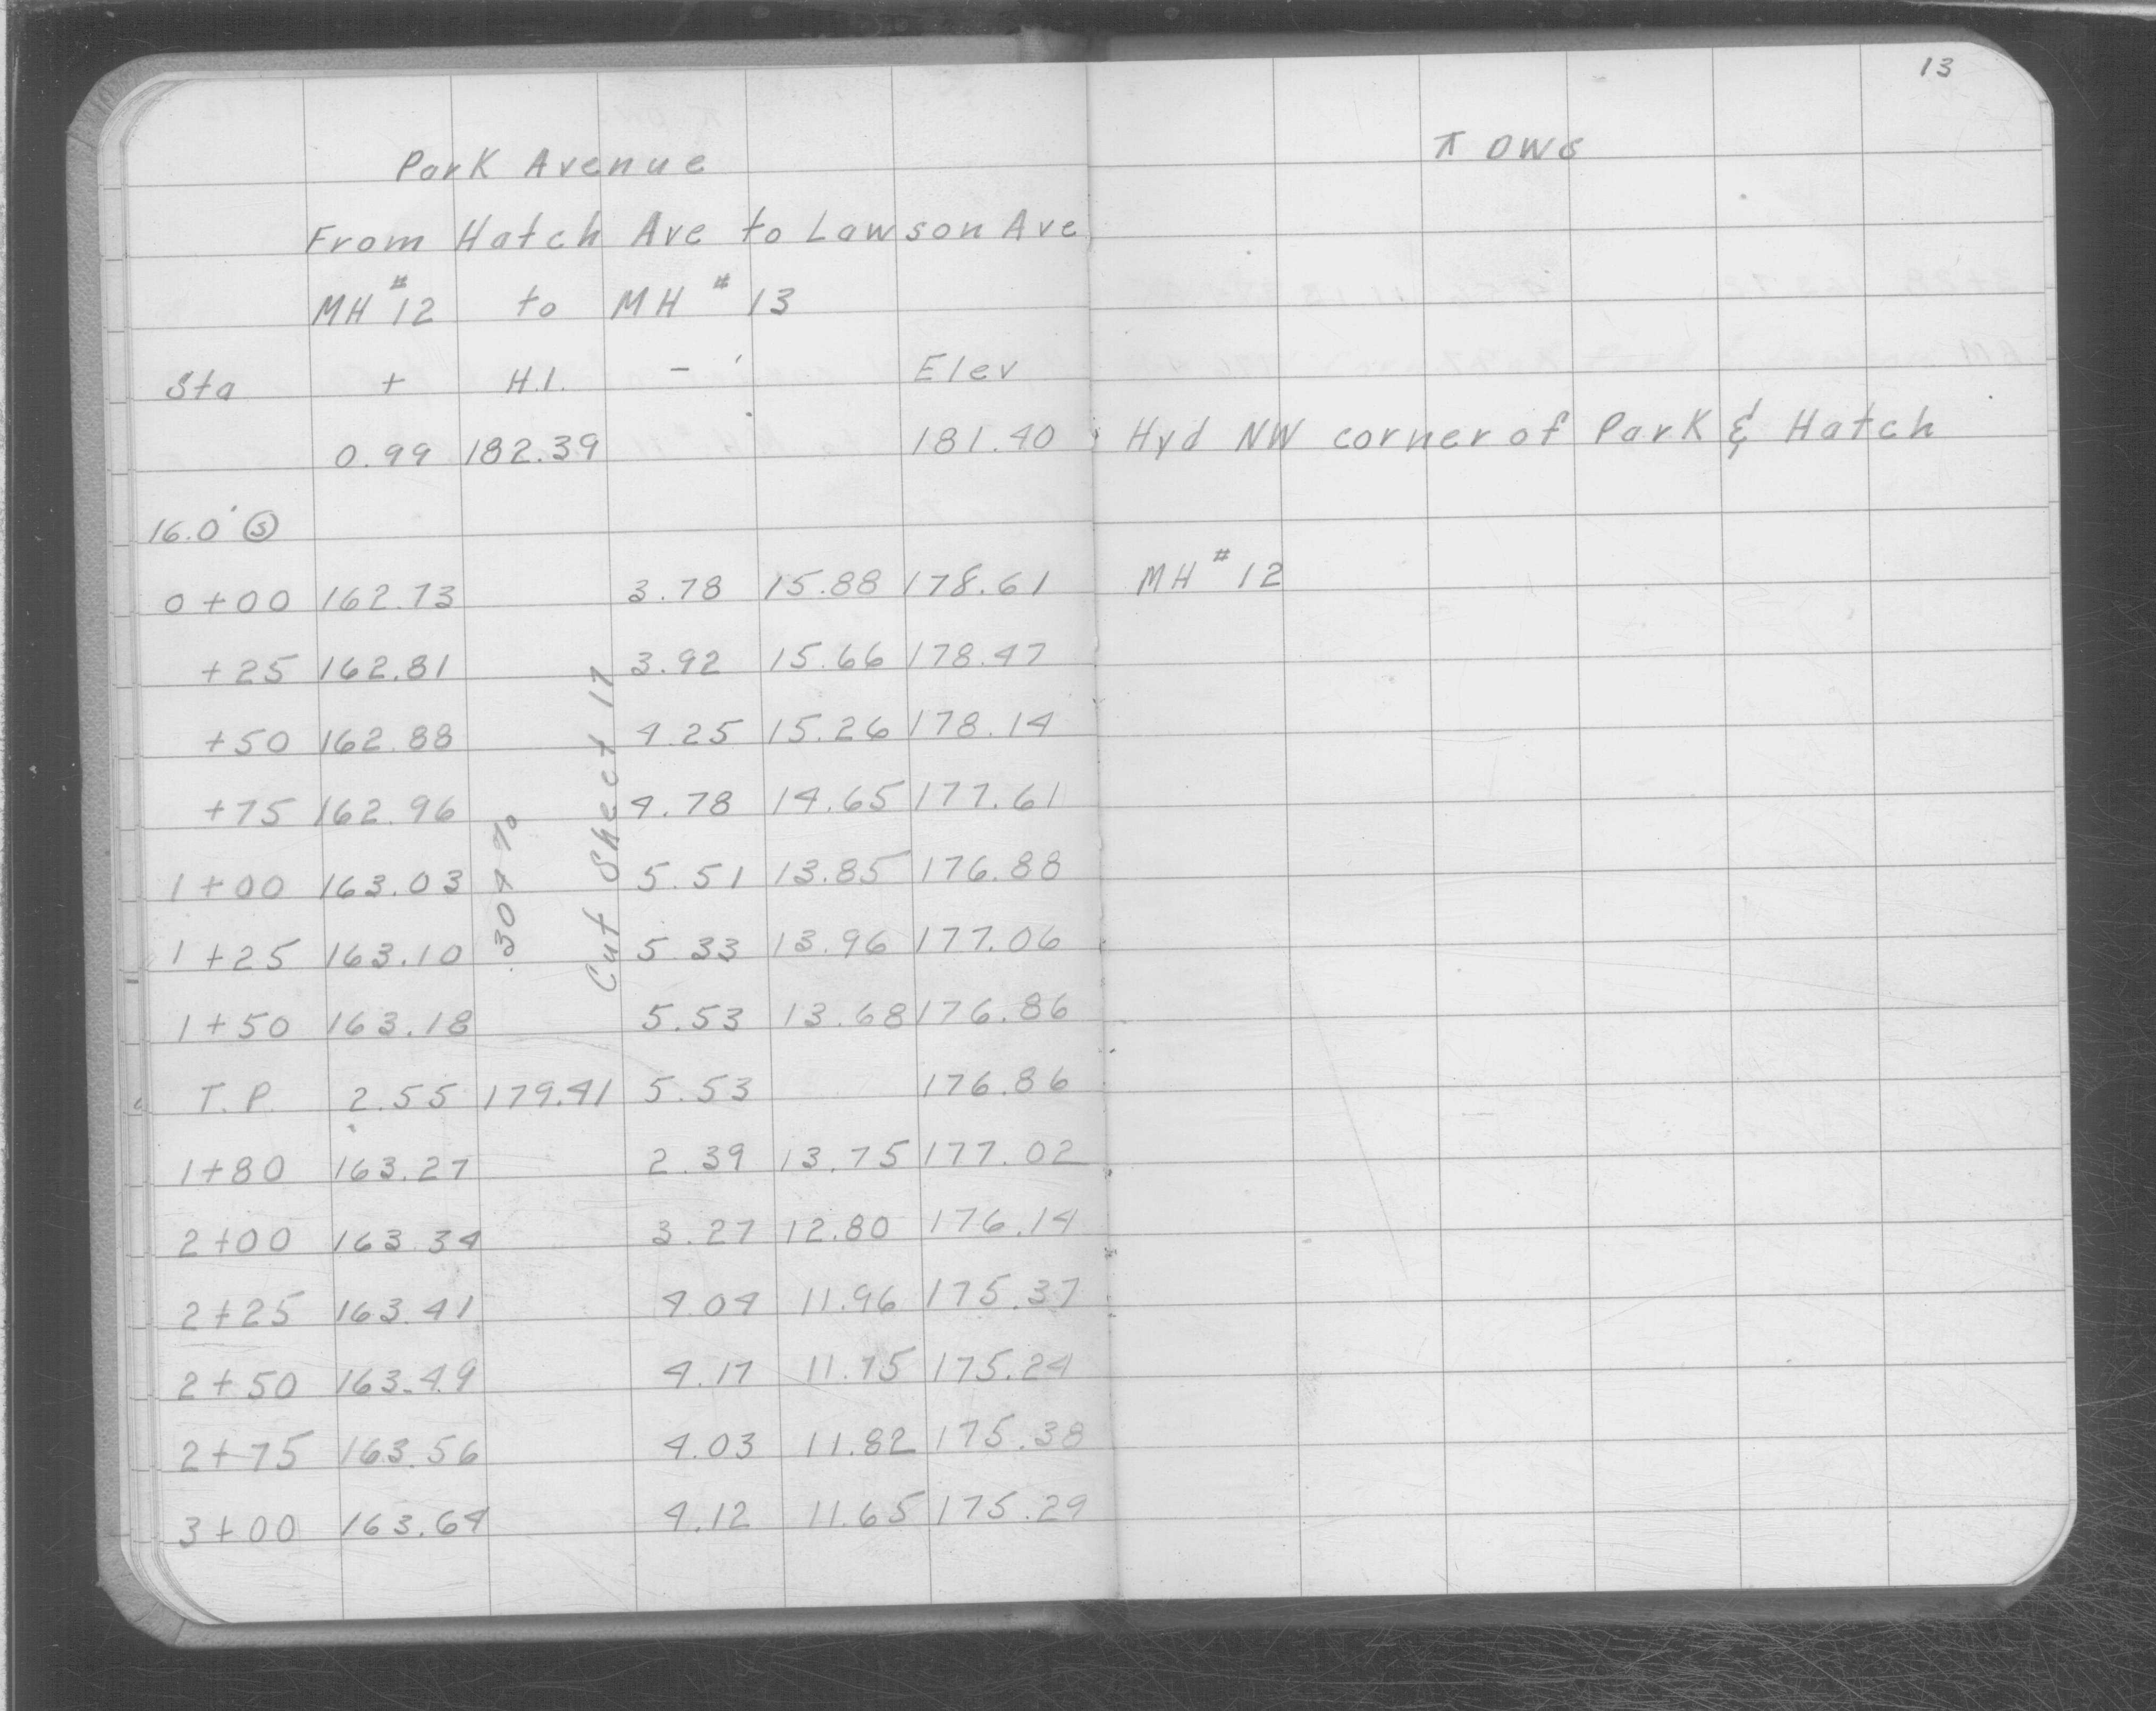 13
Park Avenue
π OWS
From Hatch Ave to Lawson Ave
MH #12 to MH #13
Sta + H.I. - Elev
0.99 182.39 181.40 Hyd NW corner of Park & Hatch
16.0' Ⓢ
0+00 162.73 3.78 15.88 178.61 MH #12
+25 162.81 3.92 15.66 178.47
+50 162.88 4.25 15.26 178.14
+75 162.96 4.78 14.65 177.61
1+00 163.03 5.51 13.85 176.88
1+25 163.10 5.33 13.96 177.06
1+50 163.18 5.53 13.68 176.86
T.P. 2.55 179.41 5.53 176.86
1+80 163.27 2.39 13.75 177.02
2+00 163.34 3.27 12.80 176.14
2+25 163.41 4.04 11.96 175.37
2+50 163.49 4.17 11.75 175.24
2+75 163.56 4.03 11.82 175.38
3+00 163.64 4.12 11.65 175.29
.304 %
Cut Sheet 17